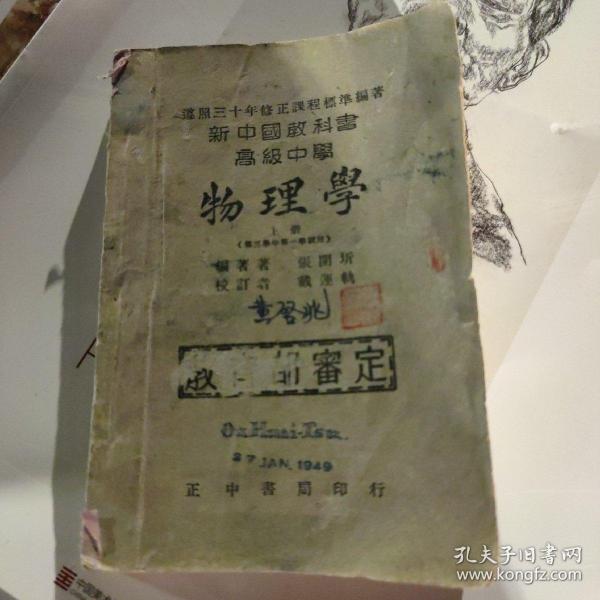 遵照三十年修正課程標準編著
新中國教科書
高級中學
物理學
上冊
(第三學年第一學期用)
編著者 張開圻
校訂者 戴運軌
黄啓兆
教育部審定
27 JAN. 1949
正中書局印行
孔夫子旧书网
www.kongfz.com